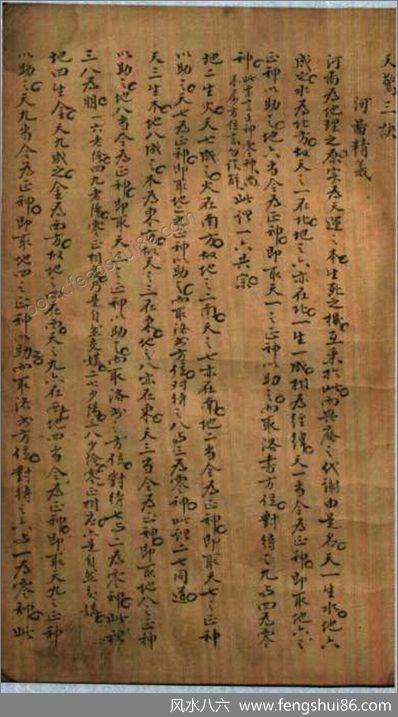 天驚三訣
河啚精義
河啚為地理之原實為天運之本生死之機互乘於此而興廢之代謝由是焉天一生水地六
成之水為北方故天之一在北地之六亦在北一生一成相為經緯天一當令為正神即取地六之
正神以助之地六當令為正神即取天一之正神以助之而取洛書方位對待之九与四為零
神 此謂一六共宗
地二生火天七成之火在南方故地之二南天之七亦在南地二當令為正神即取天七之正神
以助之天七為正神即取地二正神以助之而取洛書方位對待之八与三為零神此謂二七同道
天三生木地八成之木為東方故天之三在東地之八亦在東天三當令為正神即取地八之正神
以助之地八當令為正神即取天三之正神以助之而取洛書之方位對待七与二為零神此謂
三八為朋
地四生金天九成之金為西方故地之四在西天之九亦在西地四當令為正神即取天九之正神
以助之天九當令為正神即取地四之正神以助而取洛書方位對待之六与一為零神此
book.fengshui86.com
风水八六 www.fengshui86.com